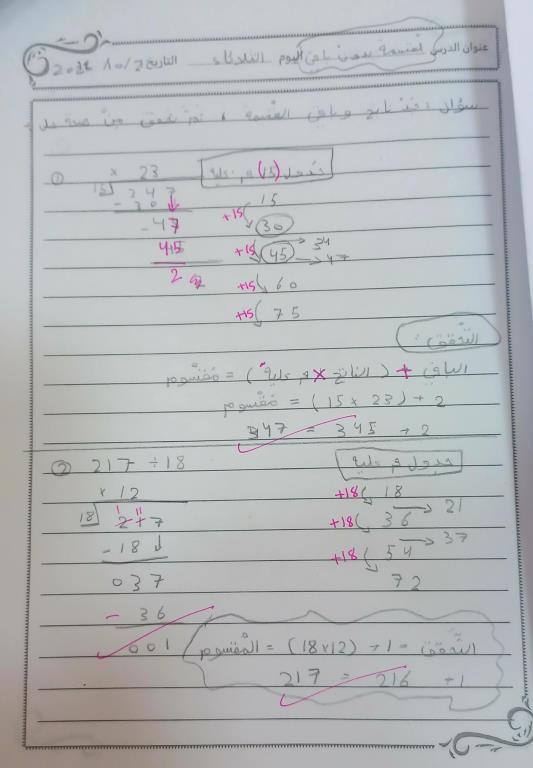 عنوان الدرس لقسمة بدون باقي اليوم الثلاثاء التاريخ 10/2
سؤال: جد ناتج وباقي القسمة، ثم تحقق من صحة
① × 23
جدول (15) م. عليه
15 347 15
- 30 +15 30
- 47 +15 45 → 34
45 → 47
2 +15 60
+15 75
التحقق:
الباقي + (الناتج × م. عليه) = مقسوم
2 + (15 × 23) = مقسوم
347 = 345 + 2
② 217 ÷ 18 جدول م. عليه
× 12 +18 18
18 217 +18 36 → 21
- 18 +18 54 → 37
037 72
- 36
001 التحقق = 1 + (18×12) = المقسوم
217 = 216 + 1